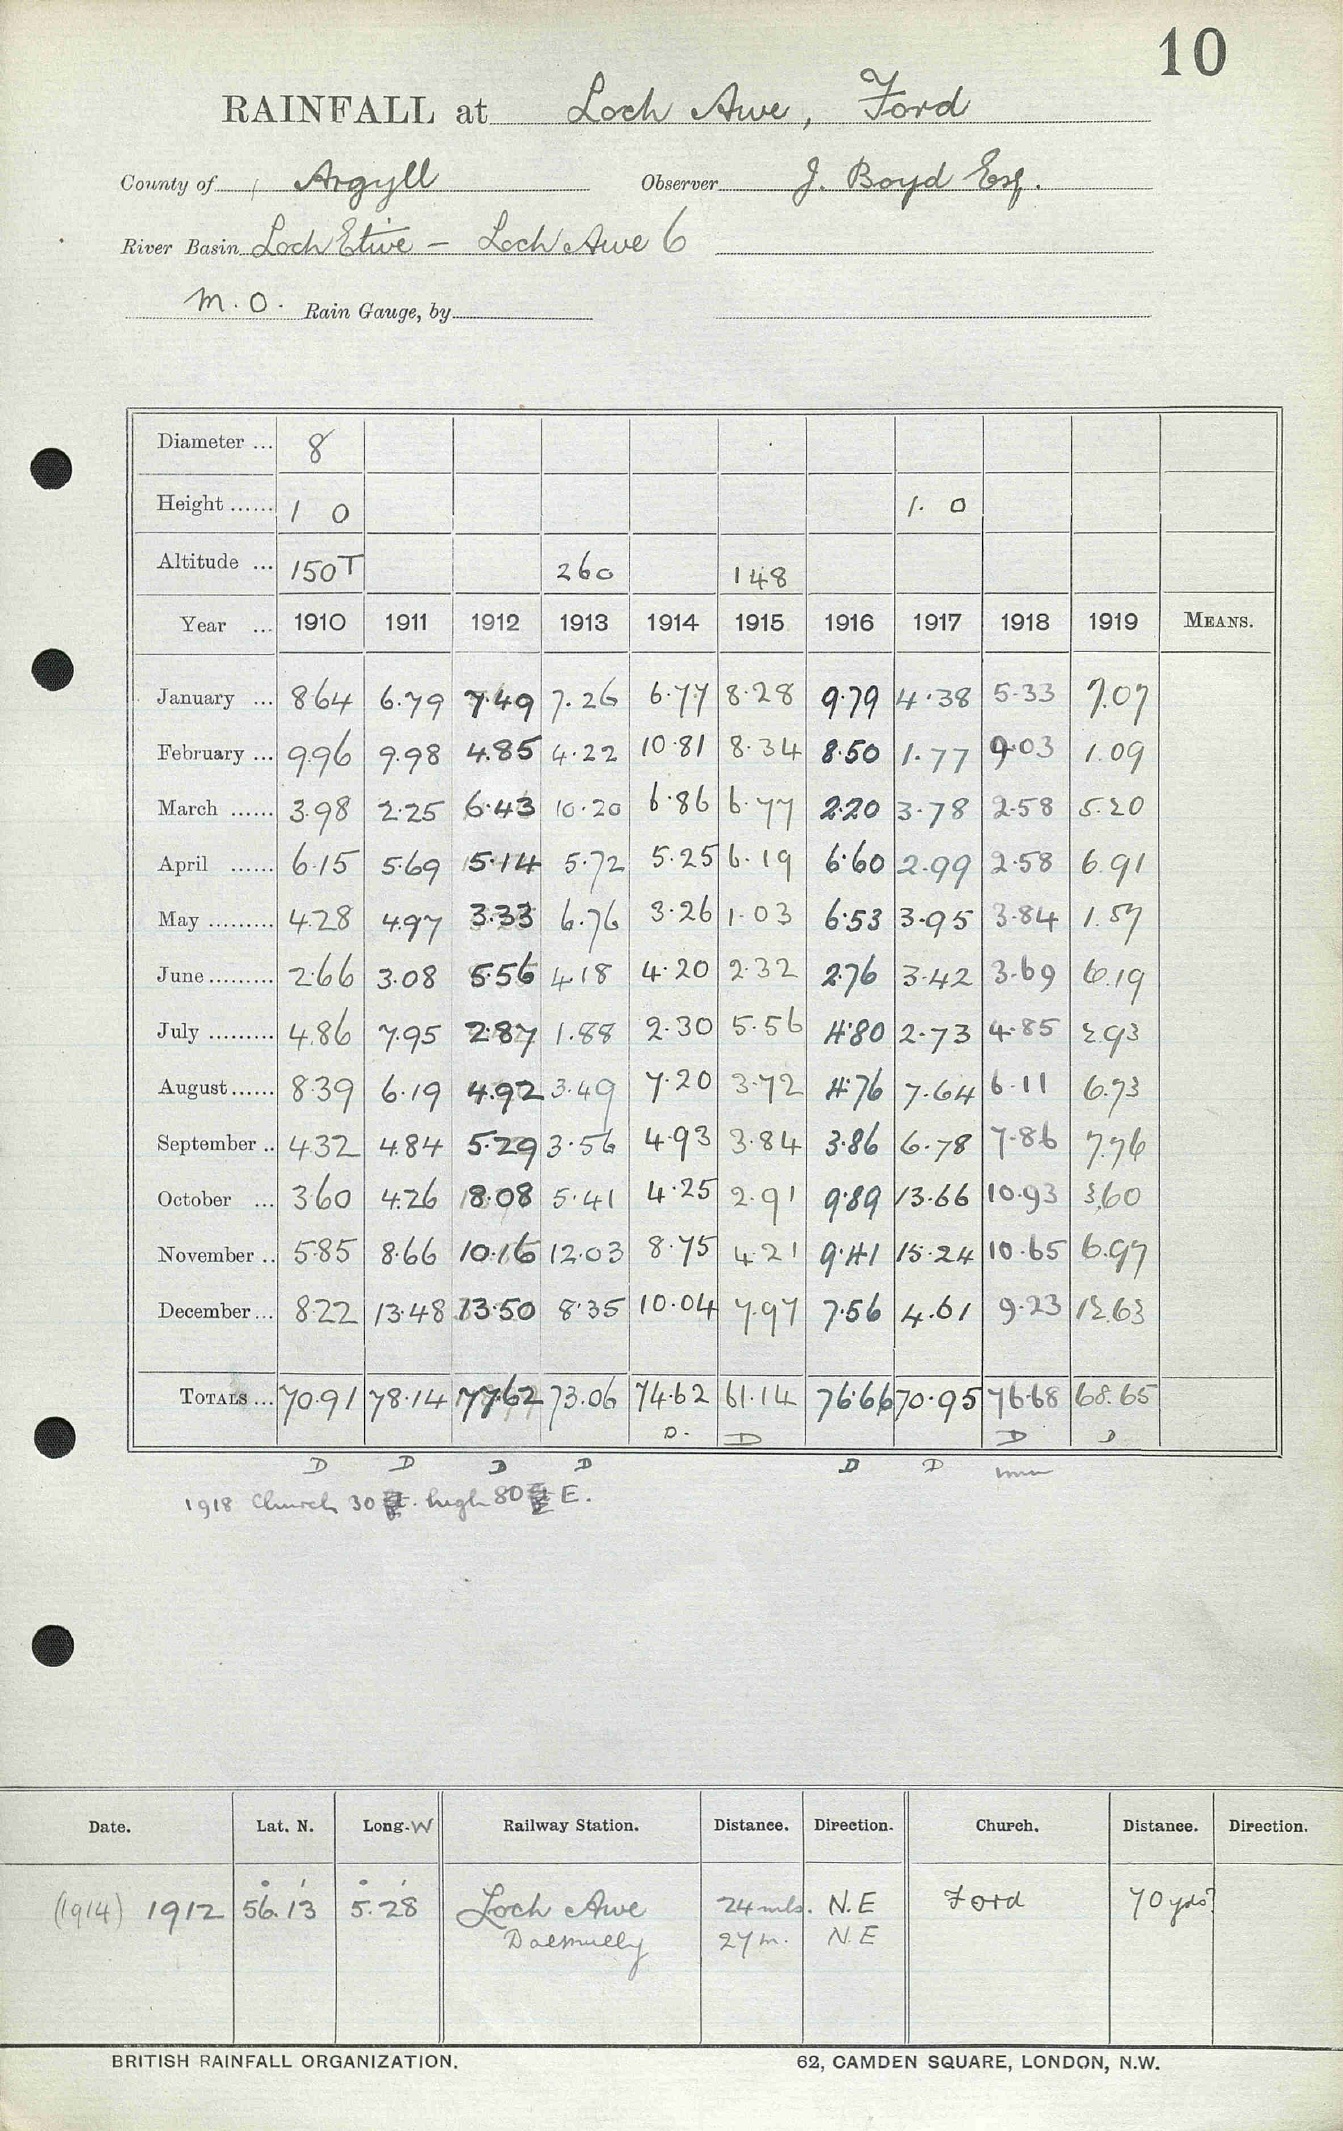 10
RAINFALL at Loch Awe, Ford
County of Argyll Observer J. Boyd Esq.
River Basin Loch Etive – Loch Awe 6
M.O. Rain Gauge, by
Diameter ... 8
Height ...... 1 0 1. 0
Altitude ... 150T 260 148
Year ... 1910 1911 1912 1913 1914 1915 1916 1917 1918 1919 MEANS.
January ... 8.64 6.79 7.49 7.26 6.77 8.28 9.79 4.38 5.33 7.07
February ... 9.96 9.98 4.85 4.22 10.81 8.34 8.50 1.77 9.03 1.09
March ...... 3.98 2.25 6.43 10.20 6.86 6.77 2.20 3.78 2.58 5.20
April ...... 6.15 5.69 5.14 5.72 5.25 6.19 6.60 2.99 2.58 6.91
May ......... 4.28 4.97 3.33 6.76 3.26 1.03 6.53 3.95 3.84 1.57
June ......... 2.66 3.08 5.56 4.18 4.20 2.32 2.76 3.42 3.69 6.19
July ......... 4.86 7.95 2.87 1.88 2.30 5.56 4.80 2.73 4.85 2.93
August ...... 8.39 6.19 4.92 3.49 7.20 3.72 4.76 7.64 6.11 6.73
September .. 4.32 4.84 5.29 3.56 4.93 3.84 3.86 6.78 7.86 7.76
October ... 3.60 4.26 8.08 5.41 4.25 2.91 9.89 13.66 10.93 3.60
November .. 5.85 8.66 10.16 12.03 8.75 4.21 9.41 15.24 10.65 6.97
December ... 8.22 13.48 13.50 8.35 10.04 7.97 7.56 4.61 9.23 12.63
TOTALS ... 70.91 78.14 77.62 73.06 74.62 61.14 76.66 70.95 76.68 68.65
D. D D D
D D D D D D
1918 Church 30 ft. high 80 E.
Date. Lat. N. Long. W Railway Station. Distance. Direction. Church. Distance. Direction.
(1914) 1912 56°.13' 5°.28' Loch Awe 24 mls. N.E Ford 70 yds?
Dalmally 27 m. N.E
BRITISH RAINFALL ORGANIZATION. 62, CAMDEN SQUARE, LONDON, N.W.